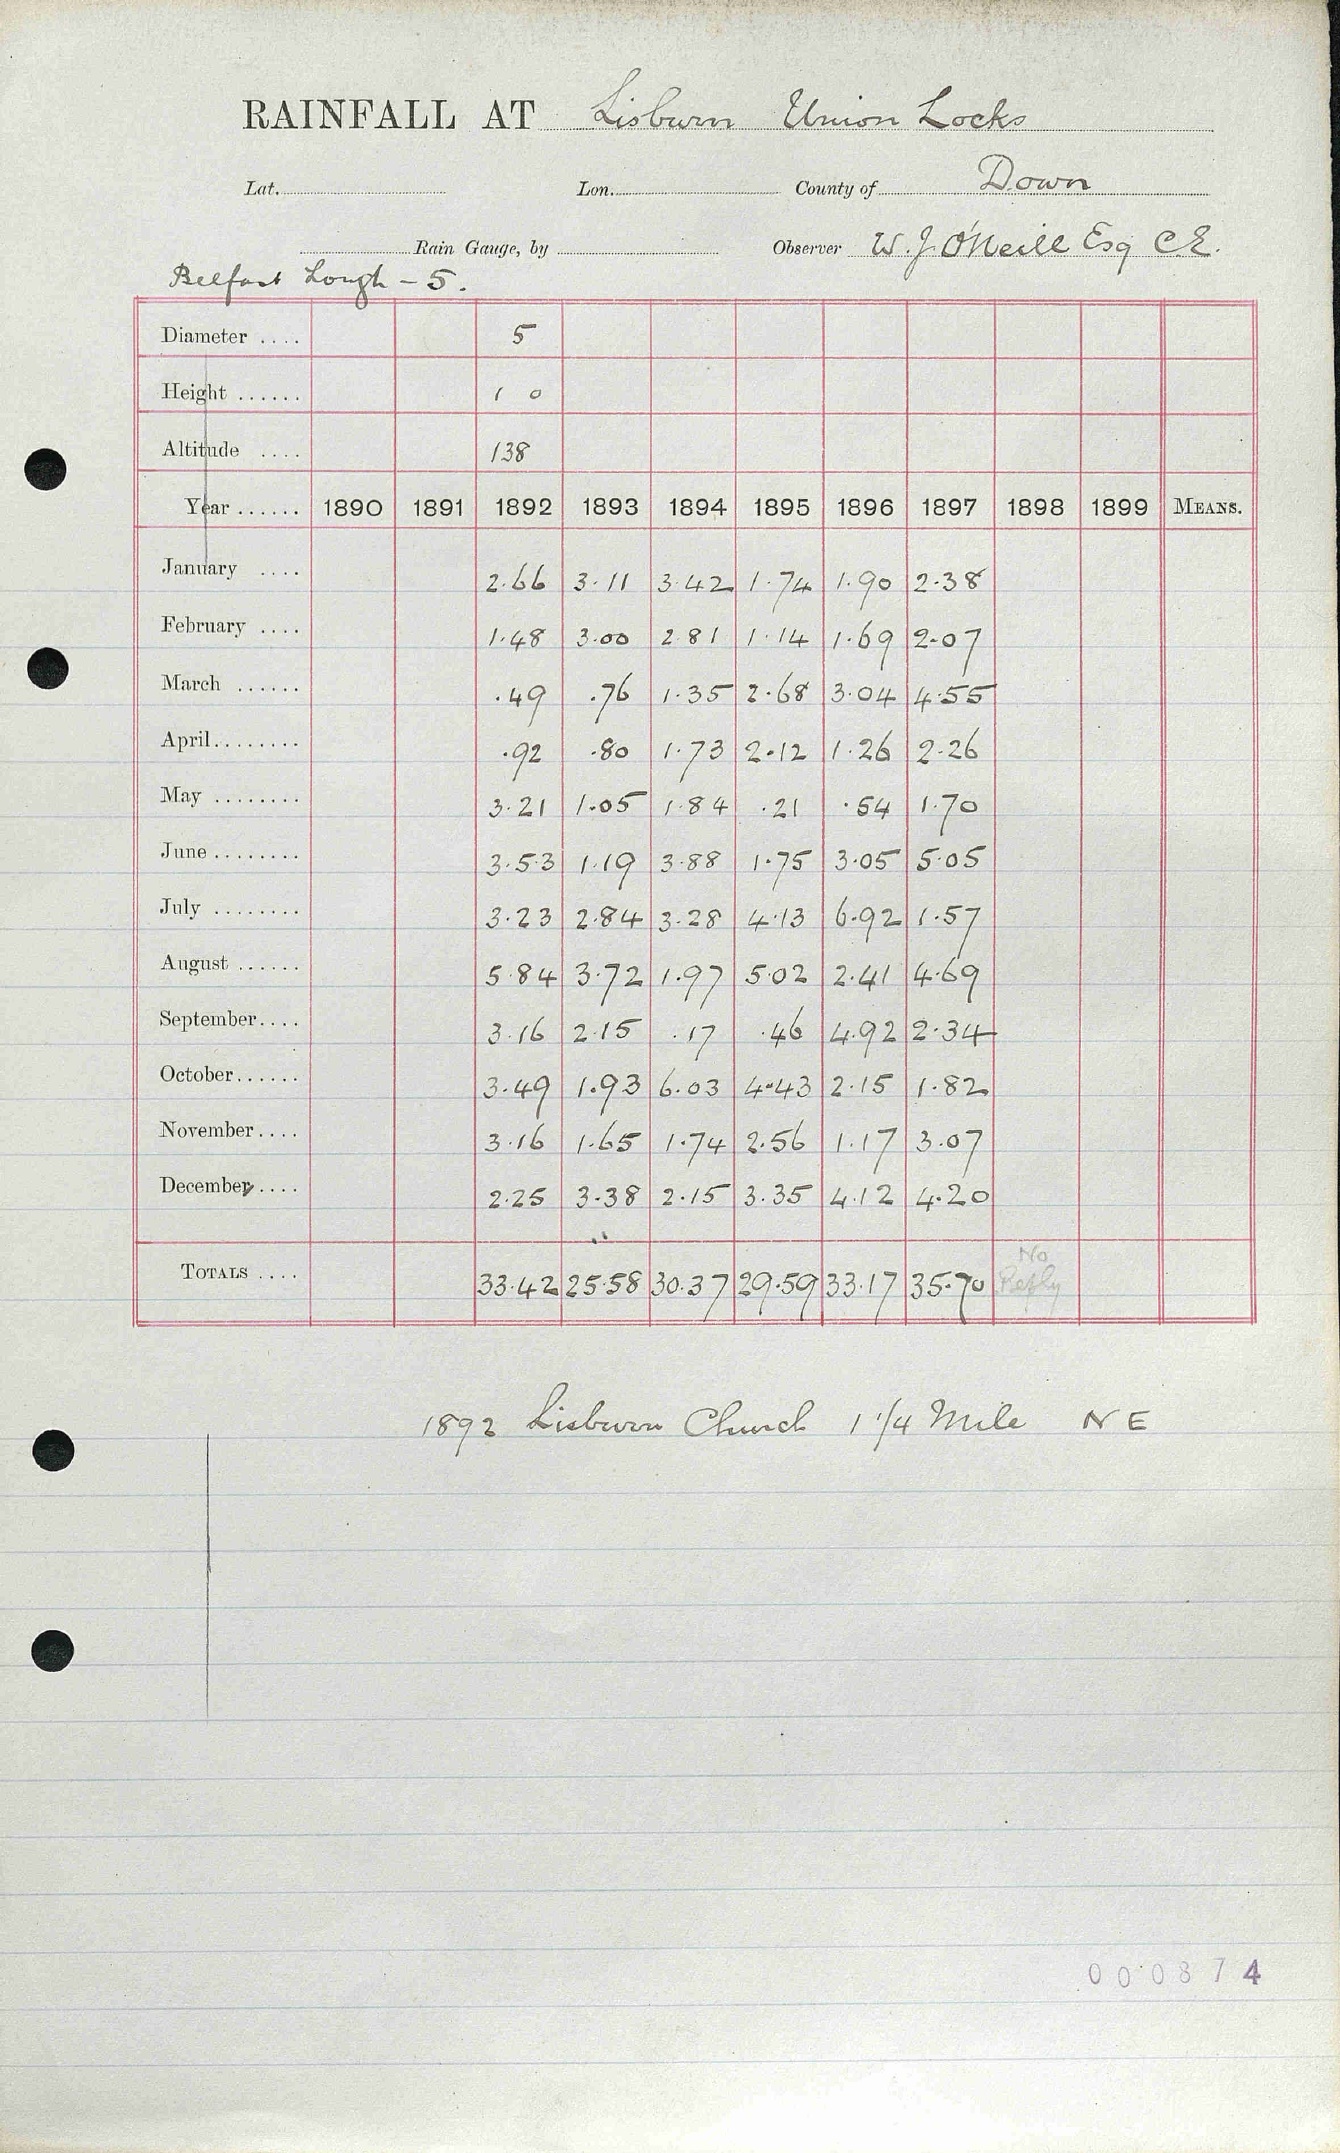 RAINFALL AT Lisburn Union Locks
Lat. Lon. County of Down
Rain Gauge, by Observer W. J. O'Neill Esq C.E.
Belfast Lough - 5.
Diameter .... 5
Height ...... 1 0
Altitude .... 138
Year ...... 1890 1891 1892 1893 1894 1895 1896 1897 1898 1899 MEANS.
January .... 2.66 3.11 3.42 1.74 1.90 2.38
February .... 1.48 3.00 2.81 1.14 1.69 2.07
March ...... .49 .76 1.35 2.68 3.04 4.55
April........ .92 .80 1.73 2.12 1.26 2.26
May ........ 3.21 1.05 1.84 .21 .54 1.70
June ........ 3.53 1.19 3.88 1.75 3.05 5.05
July ........ 3.23 2.84 3.28 4.13 6.92 1.57
August ...... 5.84 3.72 1.97 5.02 2.41 4.69
September.... 3.16 2.15 .17 .46 4.92 2.34
October...... 3.49 1.93 6.03 4.43 2.15 1.82
November.... 3.16 1.65 1.74 2.56 1.17 3.07
December.... 2.25 3.38 2.15 3.35 4.12 4.20
TOTALS .... 33.42 25.58 30.37 29.59 33.17 35.70 No Reply
1892 Lisburn Church 1 1/4 Mile N E
000874